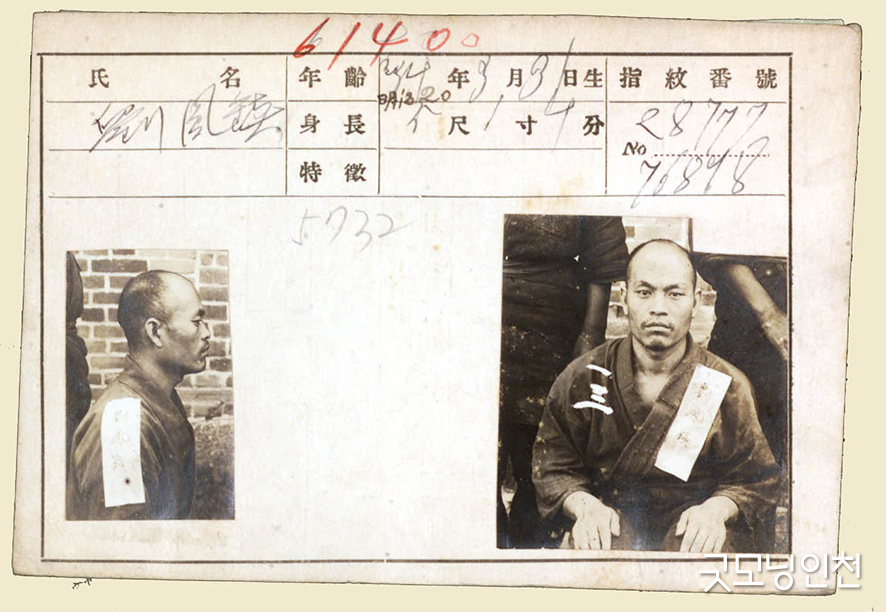 61400
氏 名 年 齡 年 3 月 31 日生 指 紋 番 號
劉 鳳 鎮 明治20
身 長 5 尺 1 寸 4 分 No 28777
特 徵 76878
5732
三
굿모닝인천